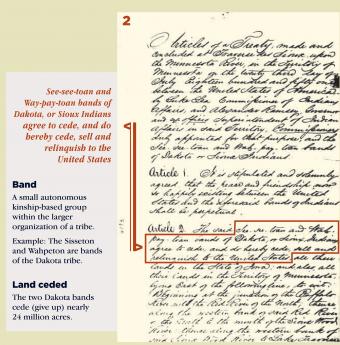 2
See-see-toan and
Way-pay-toan bands of
Dakota, or Sioux Indians
agree to cede, and do
hereby cede, sell and
relinquish to the
United States
Band
A small autonomous
kinship-based group
within the larger
organization of a tribe.
Example: The Sisseton
and Wahpeton are bands
of the Dakota tribe.
Land ceded
The two Dakota bands
cede (give up) nearly
24 million acres.
Articles of a Treaty, made and
concluded at Traverse des Sioux upon
the Minnesota River, in the Territory of
Minnesota on the twenty third day of
July Eighteen hundred and fifty one
between the United States of America
by Luke Lea Commissioner of Indian
Affairs, and Alexander Ramsey Governor
and ex officio Superintendent of Indian
Affairs in said Territory, Commissioners
duly appointed for that purpose, and the
See-see-toan and Wah-pay-toan bands
of Dakota or Sioux Indians
Article 1. It is stipulated and solemnly
agreed that the peace and friendship now
so happily existing between the United
States and the aforesaid bands of Indians
shall be perpetual
Article 2. The said See-see-toan and Wah-
pay-toan bands of Dakota or Sioux Indians
agree to cede, and do hereby cede, sell and
relinquish to the United States all their
lands in the State of Iowa, and also all
their lands in the Territory of Minnesota
lying East of the following line, to wit:
Beginning at the junction of the Buffalo
River with the Red River of the North; thence
along the western bank of said Red River
to the mouth of the Sioux Wood
River thence along the western bank of
said Sioux Wood River to Lake Traverse